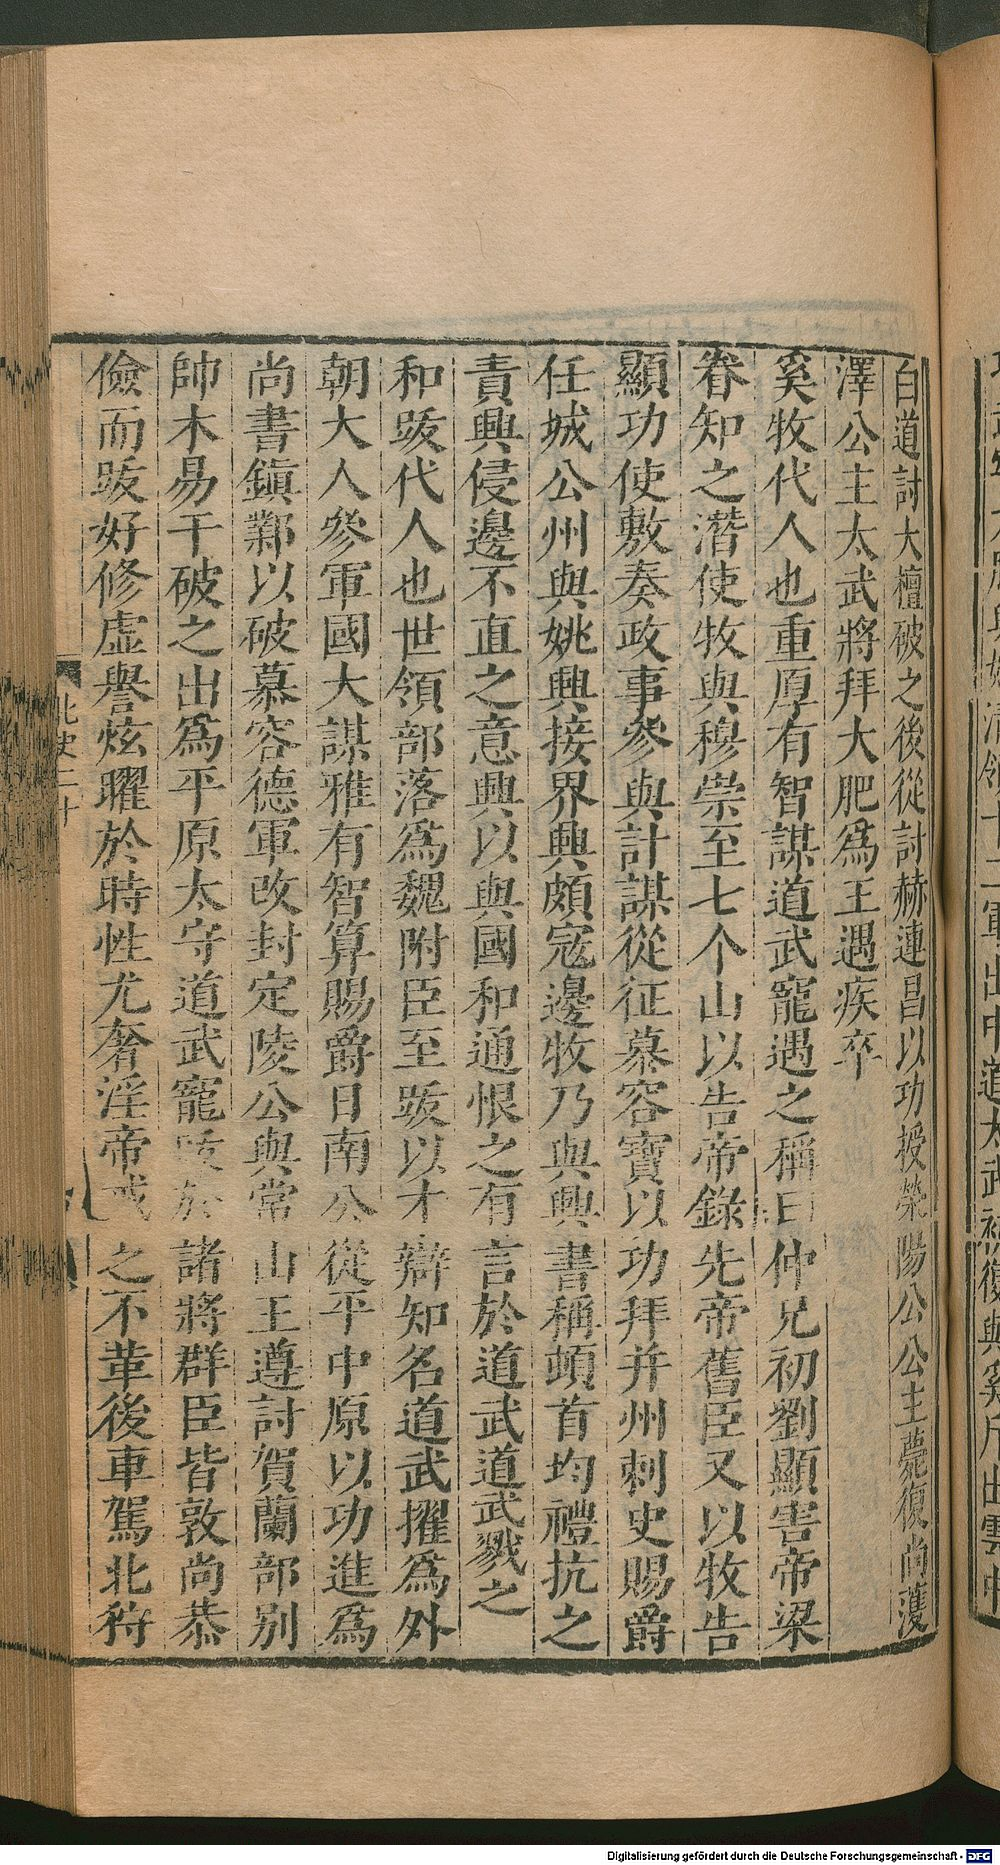 白道討大檀破之後從討赫連昌以功授滎陽公公主薨復尚濩
澤公主太武將拜大肥爲王遇疾卒
奚牧代人也重厚有智謀道武寵遇之稱曰仲兄初劉顯害帝梁
眷知之潛使牧與穆崇至七个山以告帝錄先帝舊臣又以牧告
顯功使敷奏政事參與計謀從征慕容寶以功拜并州刺史賜爵
任城公州與姚興接界興頗寇邊牧乃與興書稱頓首均禮抗之
責興侵邊不直之意興以與國和通恨之有言於道武道武戮之
和跋代人也世領部落爲魏附臣至跋以才辯知名道武擢爲外
朝大人參軍國大謀雅有智算賜爵日南公從平中原以功進爲
尚書鎮鄴以破慕容德軍改封定陵公與常山王遵討賀蘭部別
帥木易干破之出爲平原太守道武寵跋於諸將群臣皆敦尚恭
儉而跋好修虛譽炫曜於時性尤奢淫帝戒之不革後車駕北狩
北史二十
Digitalisierung gefördert durch die Deutsche Forschungsgemeinschaft - DFG